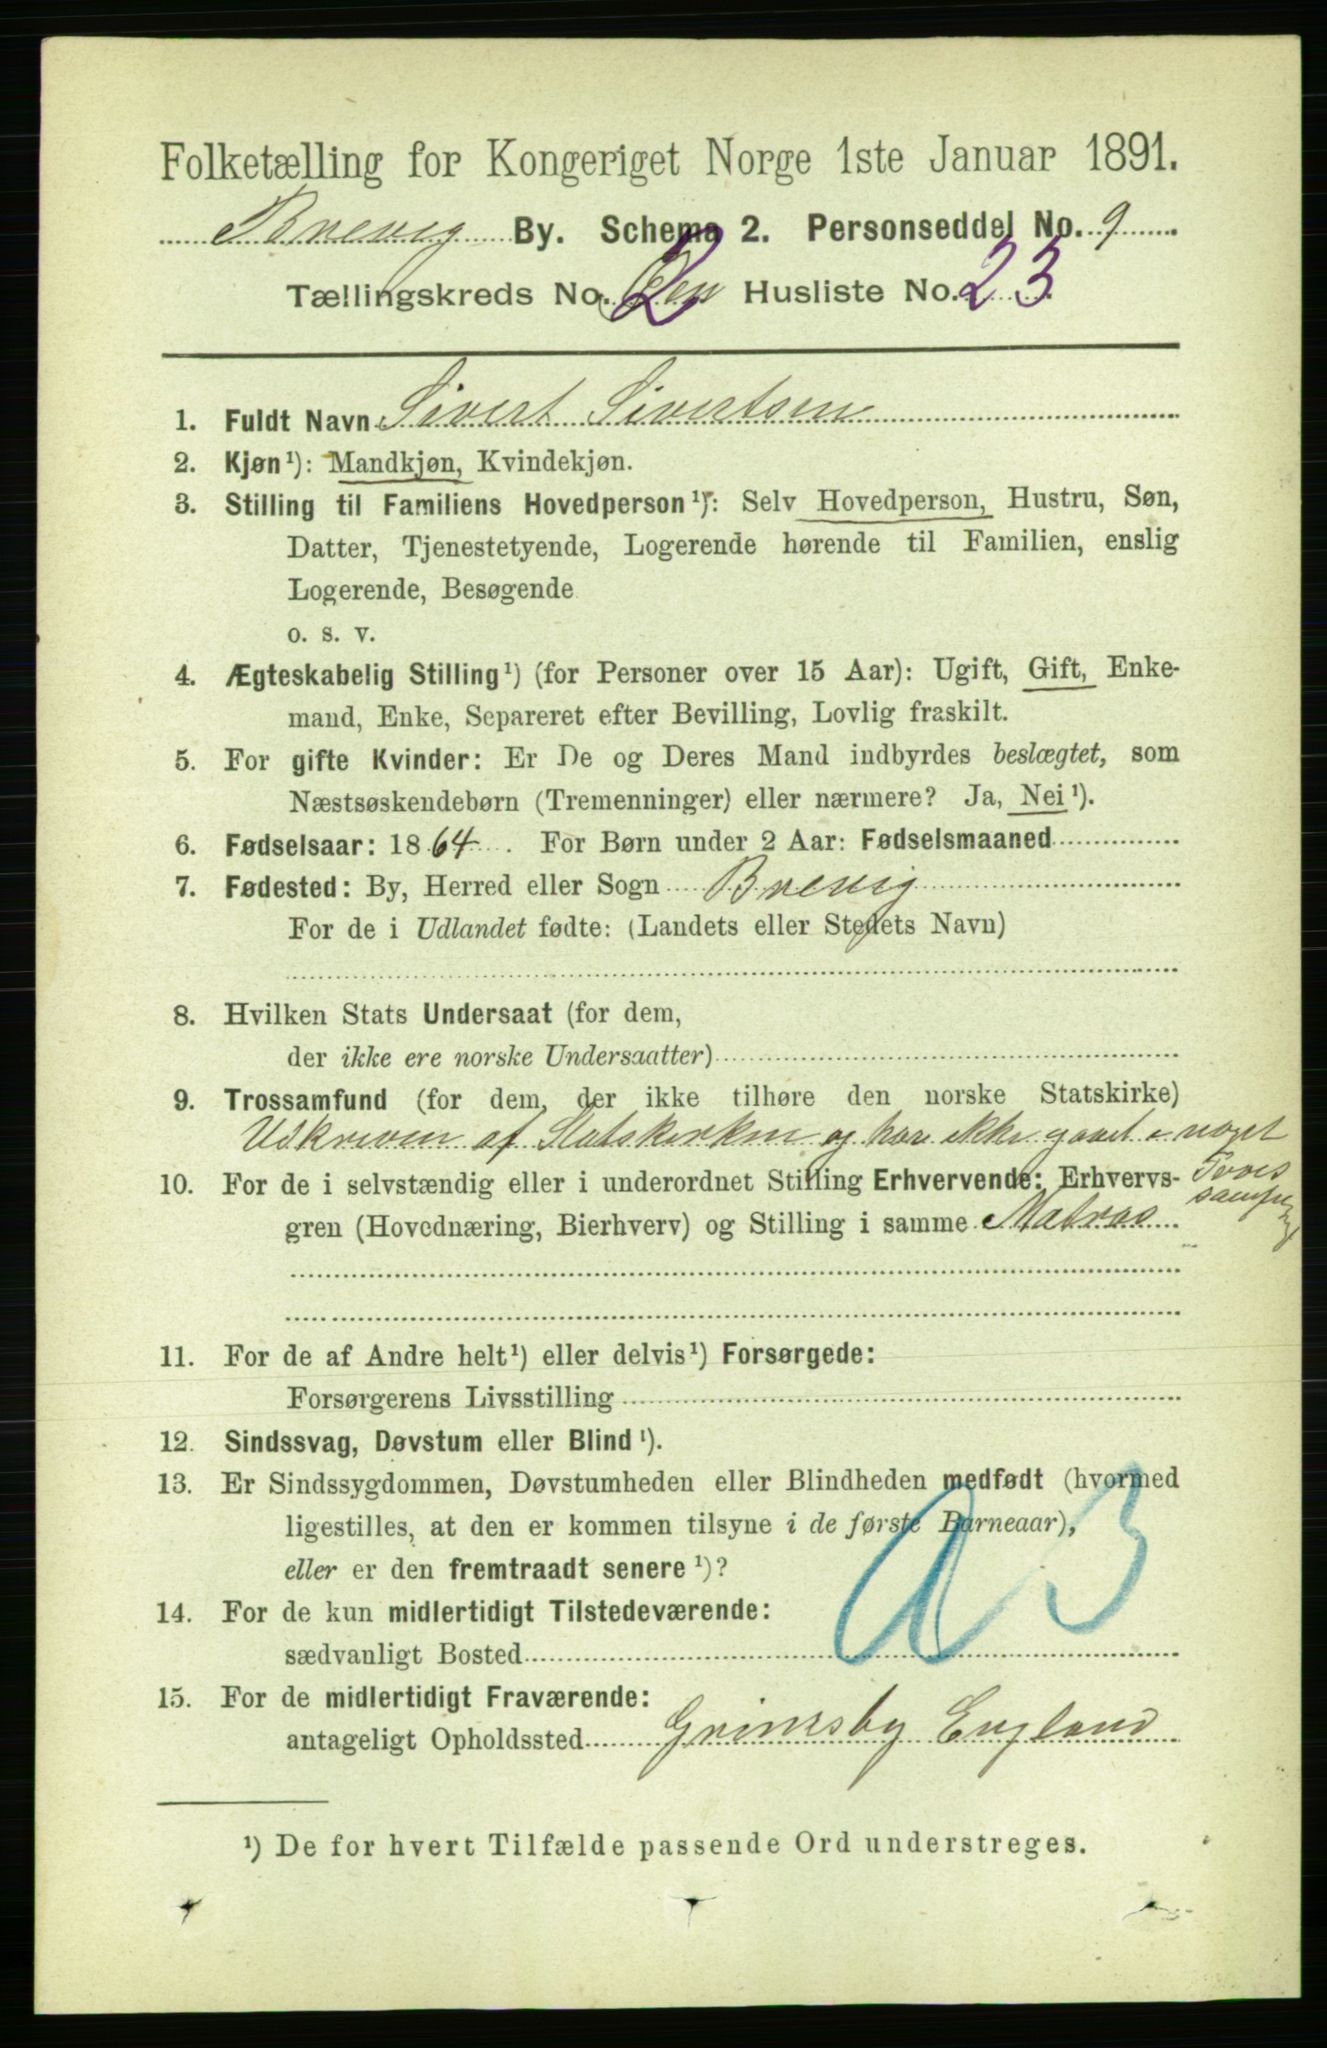 Folketælling for Kongeriget Norge 1ste Januar 1891.
Brevig By. Schema 2. Personseddel No. 9
Tællingskreds No. 2 Husliste No. 23.
1. Fuldt Navn Sivert Sivertsen
2. Kjøn ¹): Mandkjøn, Kvindekjøn.
3. Stilling til Familiens Hovedperson ¹): Selv Hovedperson, Hustru, Søn,
Datter, Tjenestetyende, Logerende hørende til Familien, enslig
Logerende, Besøgende
o. s. v.
4. Ægteskabelig Stilling ¹) (for Personer over 15 Aar): Ugift, Gift, Enke-
mand, Enke, Separeret efter Bevilling, Lovlig fraskilt.
5. For gifte Kvinder: Er De og Deres Mand indbyrdes beslægtet, som
Næstsøskendebørn (Tremenninger) eller nærmere? Ja, Nei ¹).
6. Fødselsaar: 1864. For Børn under 2 Aar: Fødselsmaaned
7. Fødested: By, Herred eller Sogn Brevig
For de i Udlandet fødte: (Landets eller Stedets Navn)
8. Hvilken Stats Undersaat (for dem,
der ikke ere norske Undersaatter)
9. Trossamfund (for dem, der ikke tilhøre den norske Statskirke)
Udskreven af Statskirken og har ikke gaaet i noget
10. For de i selvstændig eller i underordnet Stilling Erhvervende: Erhvervs- Troes
samfund
gren (Hovednæring, Bierhverv) og Stilling i samme Matros
11. For de af Andre helt ¹) eller delvis ¹) Forsørgede:
Forsørgerens Livsstilling
12. Sindssvag, Døvstum eller Blind ¹).
13. Er Sindssygdommen, Døvstumheden eller Blindheden medfødt (hvormed
ligestilles, at den er kommen tilsyne i de første Barneaar),
eller er den fremtraadt senere ¹)?
14. For de kun midlertidigt Tilstedeværende:
sædvanligt Bosted
15. For de midlertidigt Fraværende:
antageligt Opholdssted Grimsby England
¹) De for hvert Tilfælde passende Ord understreges.